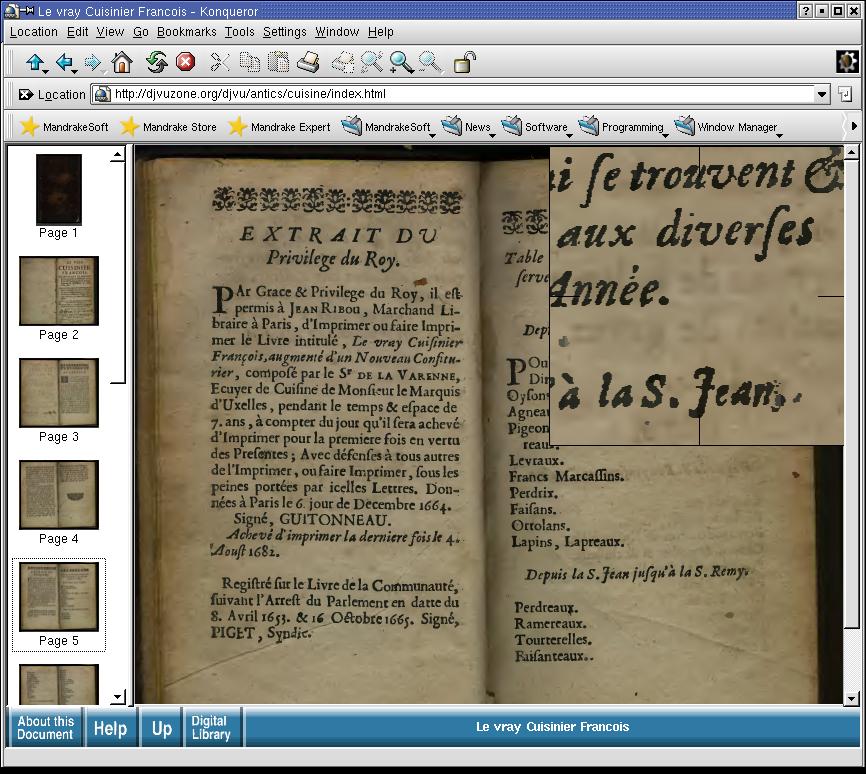 Le vray Cuisinier Francois - Konqueror
Location Edit View Go Bookmarks Tools Settings Window Help
Location http://djvuzone.org/djvu/antics/cuisine/index.html
MandrakeSoft Mandrake Store Mandrake Expert MandrakeSoft News Software Programming Window Manager
Page 1
Page 2
Page 3
Page 4
Page 5
EXTRAIT DU
Privilege du Roy.
PAr Grace & Privilege du Roy, il est
permis à JEAN RIBOU, Marchand Li-
braire à Paris, d'Imprimer ou faire Impri-
mer le Livre intitulé, Le vray Cuisinier
François, augmenté d'un Nouveau Confitu-
rier, composé par le Sr DE LA VARENNE,
Ecuyer de Cuisine de Monsieur le Marquis
d'Uxelles, pendant le temps & espace de
7. ans, à compter du jour qu'il sera achevé
d'Imprimer pour la premiere fois en vertu
des Presentes; Avec défenses à tous autres
de l'Imprimer, ou faire Imprimer, sous les
peines portées par icelles Lettres. Don-
nées à Paris le 6. jour de Decembre 1664.
Signé, GUITONNEAU.
Achevé d'imprimer la derniere fois le 4.
Aoust 1682.
Registré sur le Livre de la Communauté,
suivant l'Arrest du Parlement en datte du
8. Avril 1653. & 16 Octobre 1665. Signé,
PIGET, Syndic.
Table
serve
Dep
POu
Din
Oysons
Agneau
Pigeon
reaux.
Levraux.
Francs Marcassins.
Perdrix.
Faisans.
Ortolans.
Lapins, Lapreaux.
Depuis la S. Jean jusqu'à la S. Remy.
Perdreaux.
Ramereaux.
Tourterelles.
Faisanteaux.
i se trouvent &
aux diverses
Année.
'à la S. Jean.
About this
Document
Help
Up
Digital
Library
Le vray Cuisinier Francois